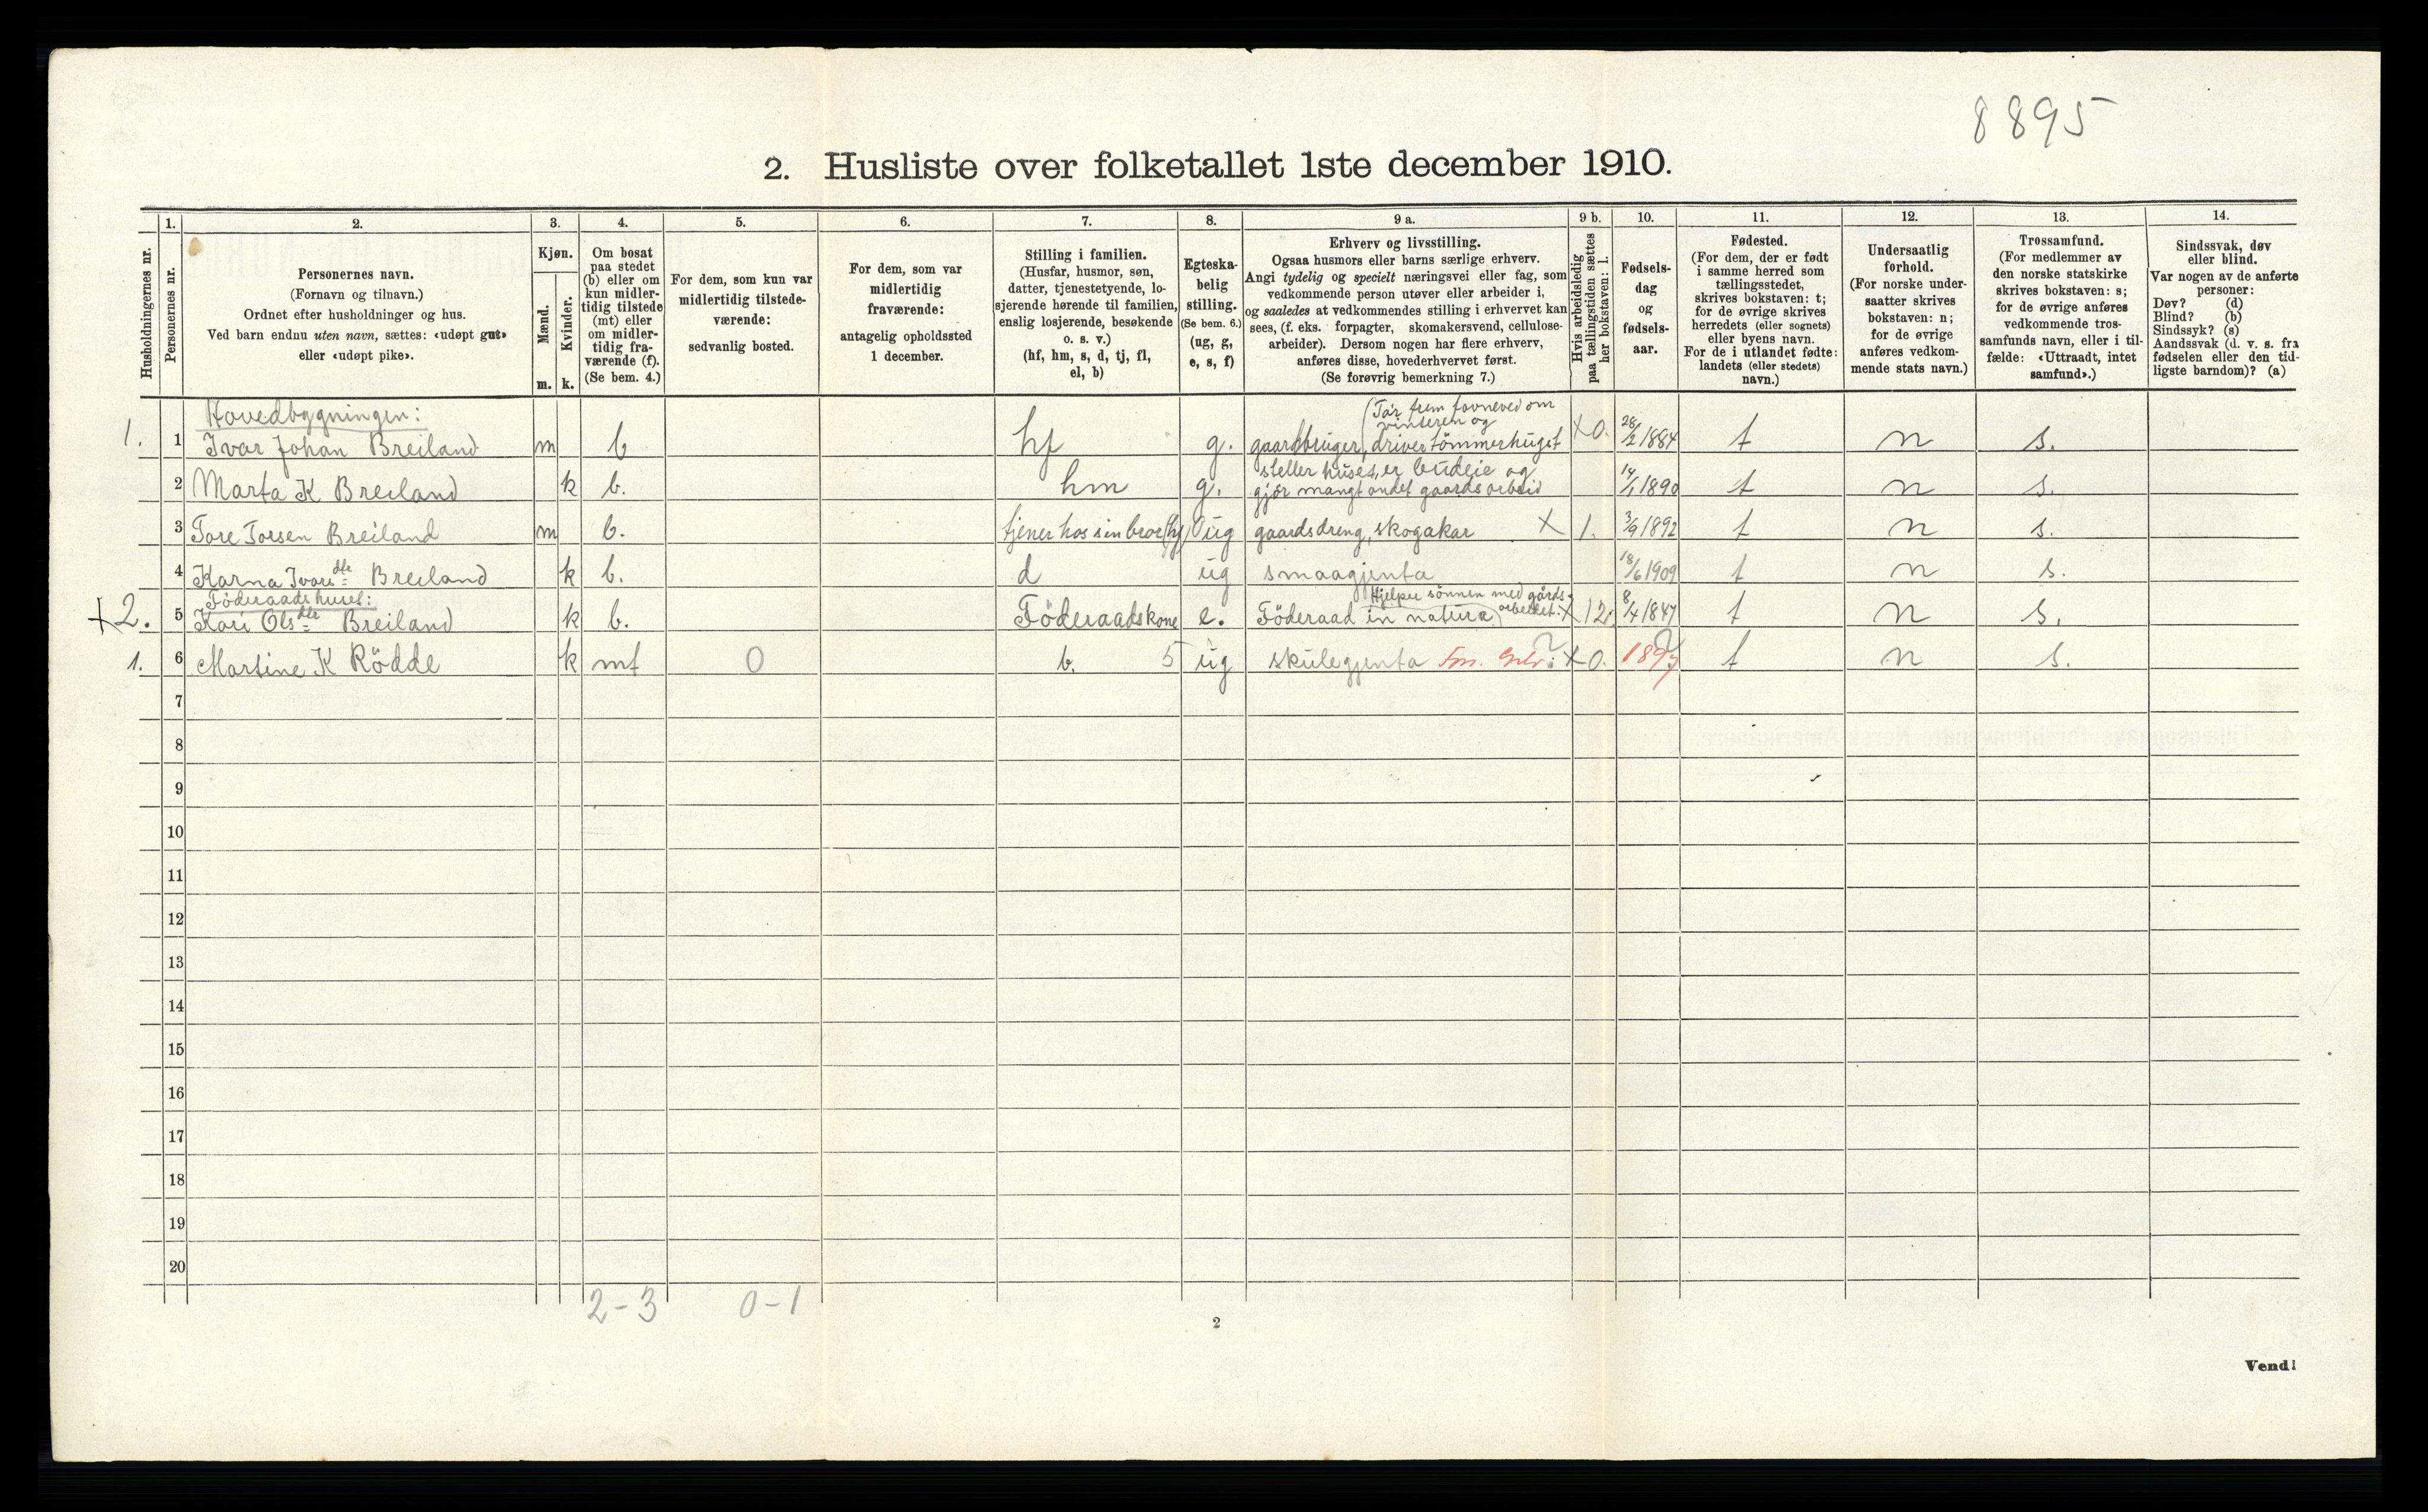 8895
2. Husliste over folketallet 1ste december 1910.
Husholdningernes nr.
1.
Personernes nr.
2.
Personernes navn.
(Fornavn og tilnavn.)
Ordnet efter husholdninger og hus.
Ved barn endnu uten navn, sættes: «udøpt gut»
eller «udøpt pike».
3.
Kjøn.
Mænd.
m.
Kvinder.
k.
4.
Om bosat
paa stedet
(b) eller om
kun midler-
tidig tilstede
(mt) eller
om midler-
tidig fra-
værende (f).
(Se bem. 4.)
5.
For dem, som kun var
midlertidig tilstede-
værende:
sedvanlig bosted.
6.
For dem, som var
midlertidig
fraværende:
antagelig opholdssted
1 december.
7.
Stilling i familien.
(Husfar, husmor, søn,
datter, tjenestetyende, lo-
sjerende hørende til familien,
enslig losjerende, besøkende
o. s. v.)
(hf, hm, s, d, tj, fl,
el, b)
8.
Egteska-
belig
stilling.
(Se bem. 6.)
(ug, g,
e, s, f)
9 a.
Erhverv og livsstilling.
Ogsaa husmors eller barns særlige erhverv.
Angi tydelig og specielt næringsvei eller fag, som
vedkommende person utøver eller arbeider i,
og saaledes at vedkommendes stilling i erhvervet kan
sees, (f. eks. forpagter, skomakersvend, cellulose-
arbeider). Dersom nogen har flere erhverv,
anføres disse, hovederhvervet først.
(Se forøvrig bemerkning 7.)
9 b.
Hvis arbeidsledig
paa tællingstiden sættes
her bokstaven: l.
10.
Fødsels-
dag
og
fødsels-
aar.
11.
Fødested.
(For dem, der er født
i samme herred som
tællingsstedet,
skrives bokstaven: t;
for de øvrige skrives
herredets (eller sognets)
eller byens navn.
For de i utlandet fødte:
landets (eller stedets)
navn.)
12.
Undersaatlig
forhold.
(For norske under-
saatter skrives
bokstaven: n;
for de øvrige
anføres vedkom-
mende stats navn.)
13.
Trossamfund.
(For medlemmer av
den norske statskirke
skrives bokstaven: s;
for de øvrige anføres
vedkommende tros-
samfunds navn, eller i til-
fælde: «Uttraadt, intet
samfund».)
14.
Sindssvak, døv
eller blind.
Var nogen av de anførte
personer:
Døv? (d)
Blind? (b)
Sindssyk? (s)
Aandssvak (d. v. s. fra
fødselen eller den tid-
ligste barndom)? (a)
Hovedbygningen: (Tar frem favneved om
vinteren og
1. 1 Ivar Johan Breiland m b hf g. gaardbruger, driver tömmerhuget X 0. 28/2 1884 t n s.
steller huset, er budeie og
2 Marta K Breiland k b. hm g. gjör mangt andet gaardsarbeid 14/1 1890 t n s.
3 Tore Torsen Breiland m b. tjener hos sin broe (tj) ug gaardsdreng, skogakar X 1. 3/9 1892 t n s.
4 Karna Ivarsdtr Breiland k b. d ug smaagjenta 18/6 1909 t n s.
Föderaadshuset: Hjelper sönnen med gårds-
X2. 5 Kari Olsdtr Breiland k b. Föderaadskone e. Föderaad in natura) arbeidet. X 12. 8/4 1847 t n s.
1. 6 Martine K Rödde k mt 0 b. 5 ug skulegjenta ? X 0. 1897 ? t n s.
7
8
9
10
11
12
13
14
15
16
17
18
19
20
2-3 0-1
2
Vend!